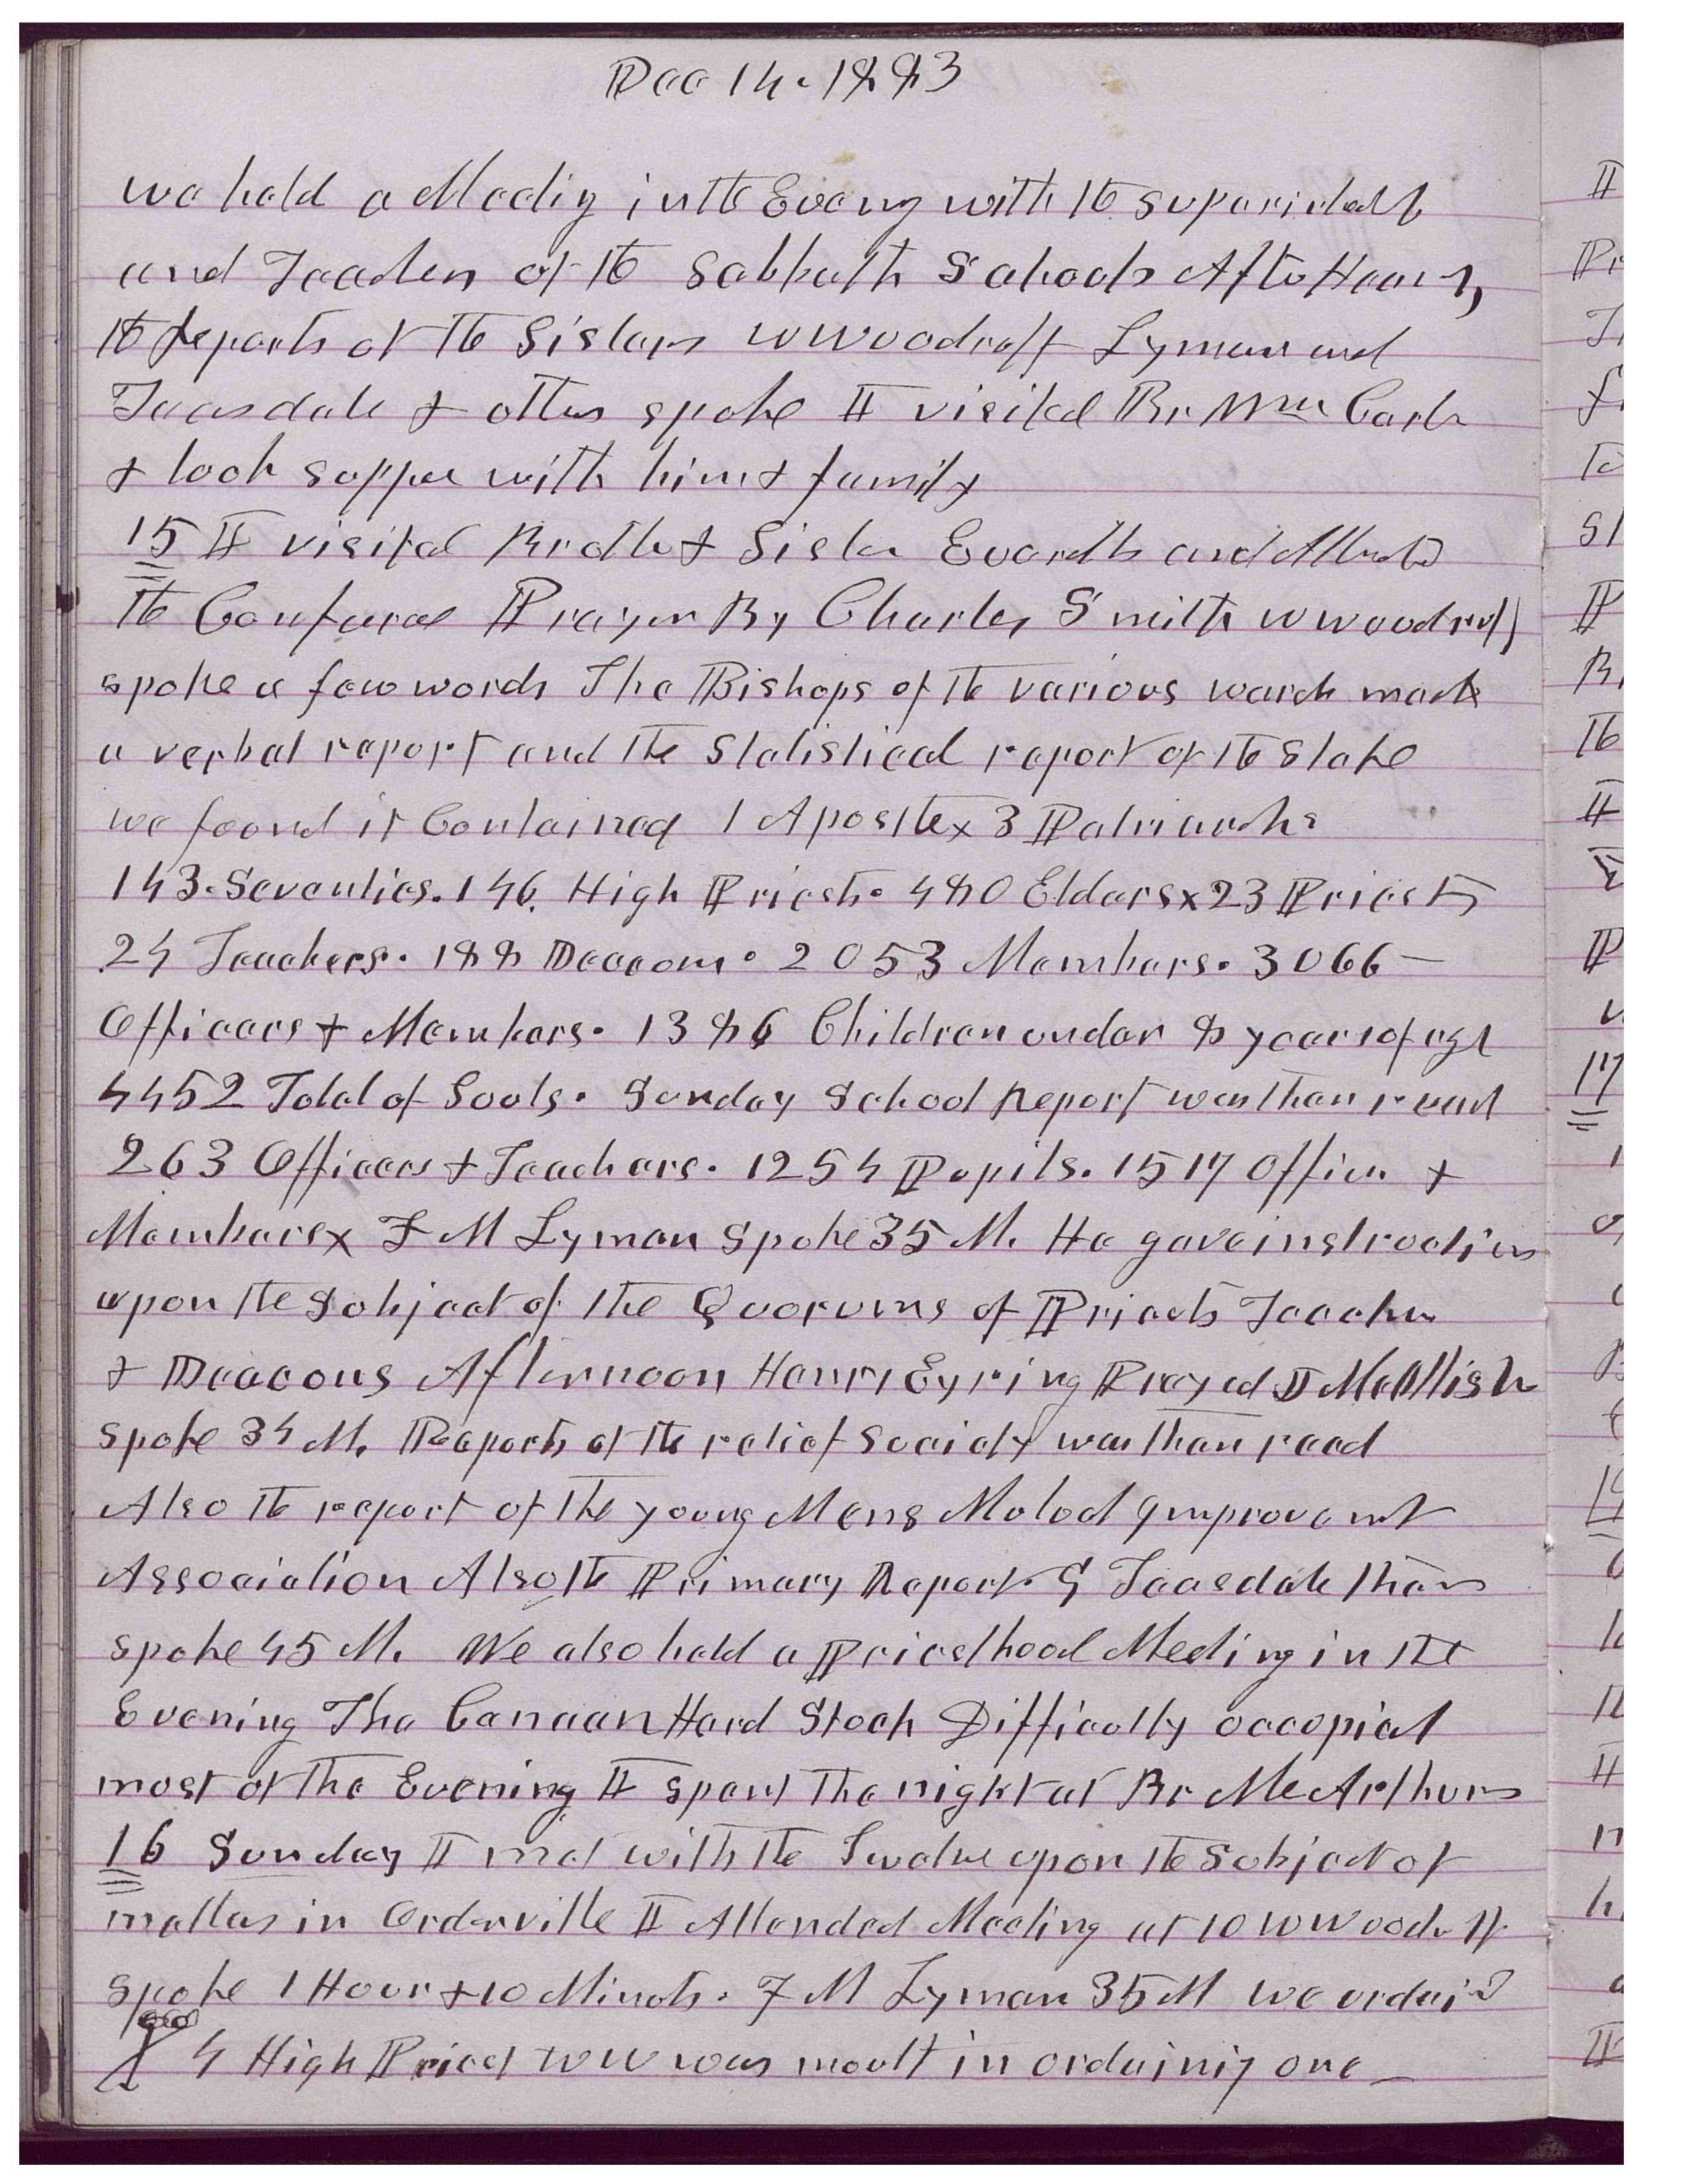 Dec 14. 1883
we held a Meeting in the Evening with the superintendt
and Teachers of the Sabbath Schools After Hearing
the reports of the Sisters W Woodruff Lyman and
Teasdale & others spoke I visited Br Wm Carter
& took supper with him & family
15 I visited Brother & Sister Everetts and Attended
the Conference Prayer By Charles Smith W Woodruff
spoke a few words The Bishops of the various wards made
a verbal report and the Statistical report of the Stake
we found it Contained 1 Apostle x 3 Patriarchs
143. Seventies. 146. High Priests. 480 Elders x 23 Priests
24 Teachers. 188 Deacons. 2053 Members. 3066 —
Officers & Members. 1386 Children under 8 years of age
4452 Total of Souls. Sunday School Report was then read
263 Officers & Teachers. 1254 Pupils. 1517 Officers &
Members x F M Lyman Spoke 35 M. He gave instructions
upon the Subject of the Quorums of Priests Teachers
& Deacons Afternoon Henry Eyring Prayed D McAllister
spoke 34 M. Reports of the relief Society was then read
Also the report of the young Mens Mutual Improvement
Association Also the Primary Report. G Teasdale then
spoke 45 M. We also held a Priesthood Meeting in the
Evening The Canaan Herd Stock Difficulty occupied
most of the Evening I spent the night at Br McArthurs
16 Sunday I met with the Twelve upon the Subject of
matters in Orderville I Attended Meeting at 10 W Woodruff
spoke 1 Hour & 10 Minuts. F M Lyman 35 M we ordained
4 High Priest WW was mouth in ordaining one —